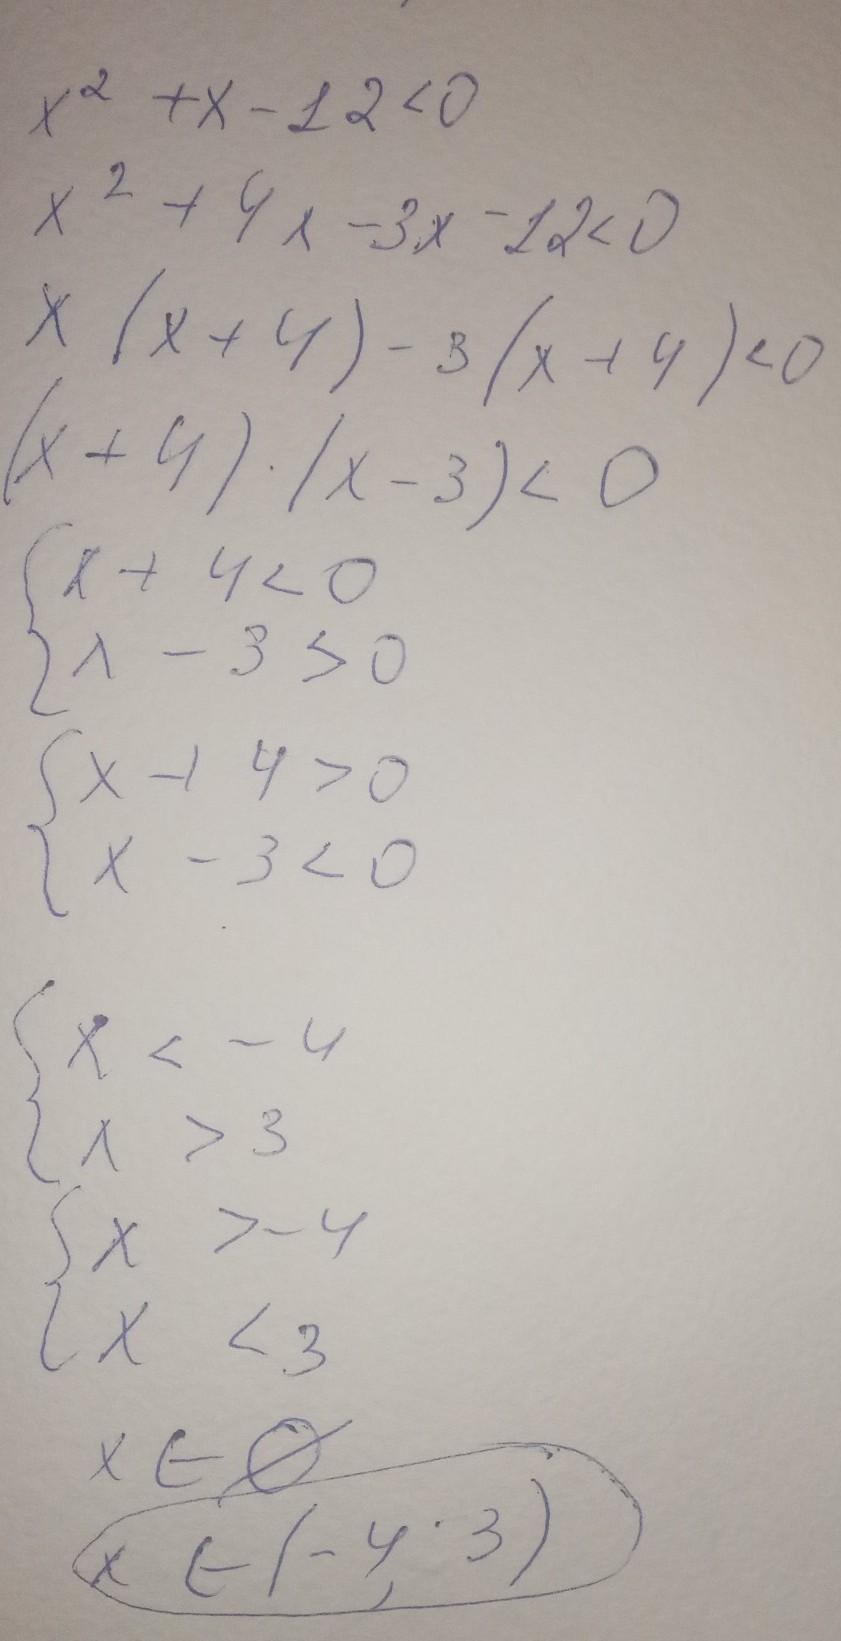 x² + x - 12 < 0
x² + 4x - 3x - 12 < 0
x (x + 4) - 3 (x + 4) < 0
(x + 4) · (x - 3) < 0
{ x + 4 < 0
x - 3 > 0
{ x + 4 > 0
x - 3 < 0
{ x < -4
x > 3
{ x > -4
x < 3
x ∈ ∅
x ∈ (-4; 3)